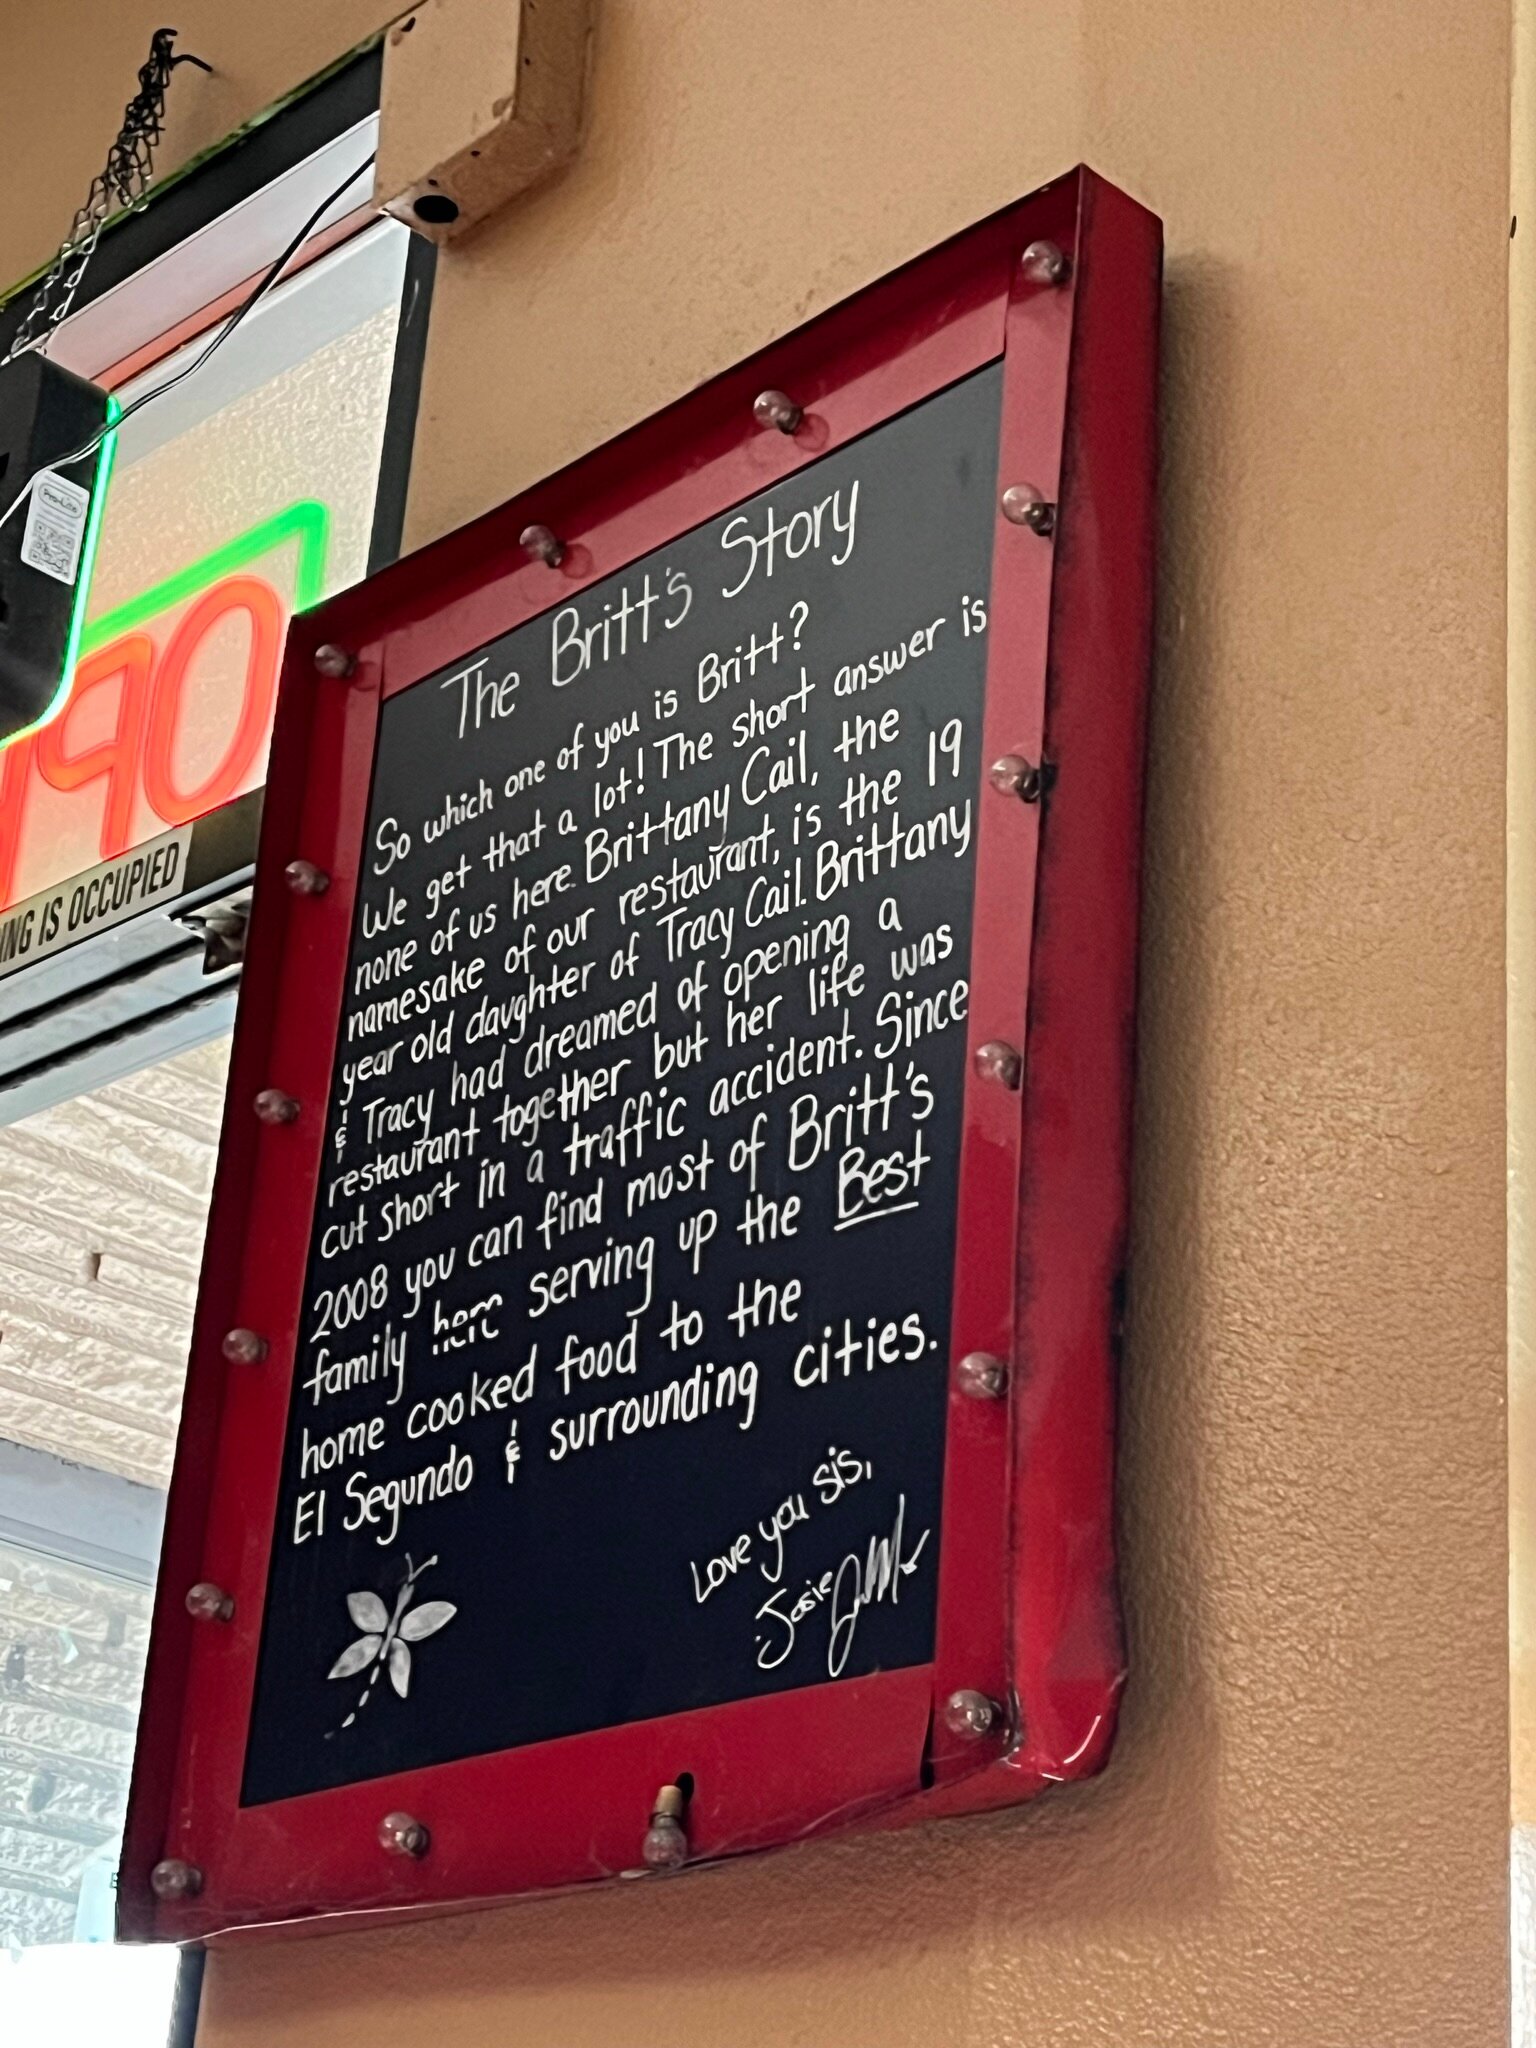 The Britt's Story
So which one of you is Britt?
We get that a lot! The short answer is
none of us here. Brittany Cail, the
namesake of our restaurant, is the 19
year old daughter of Tracy Cail. Brittany
& Tracy had dreamed of opening a
restaurant together but her life was
cut short in a traffic accident. Since
2008 you can find most of Britt's
family here serving up the Best
home cooked food to the
El Segundo & surrounding cities.
Love you sis,
Josie
OP
ING IS OCCUPIED